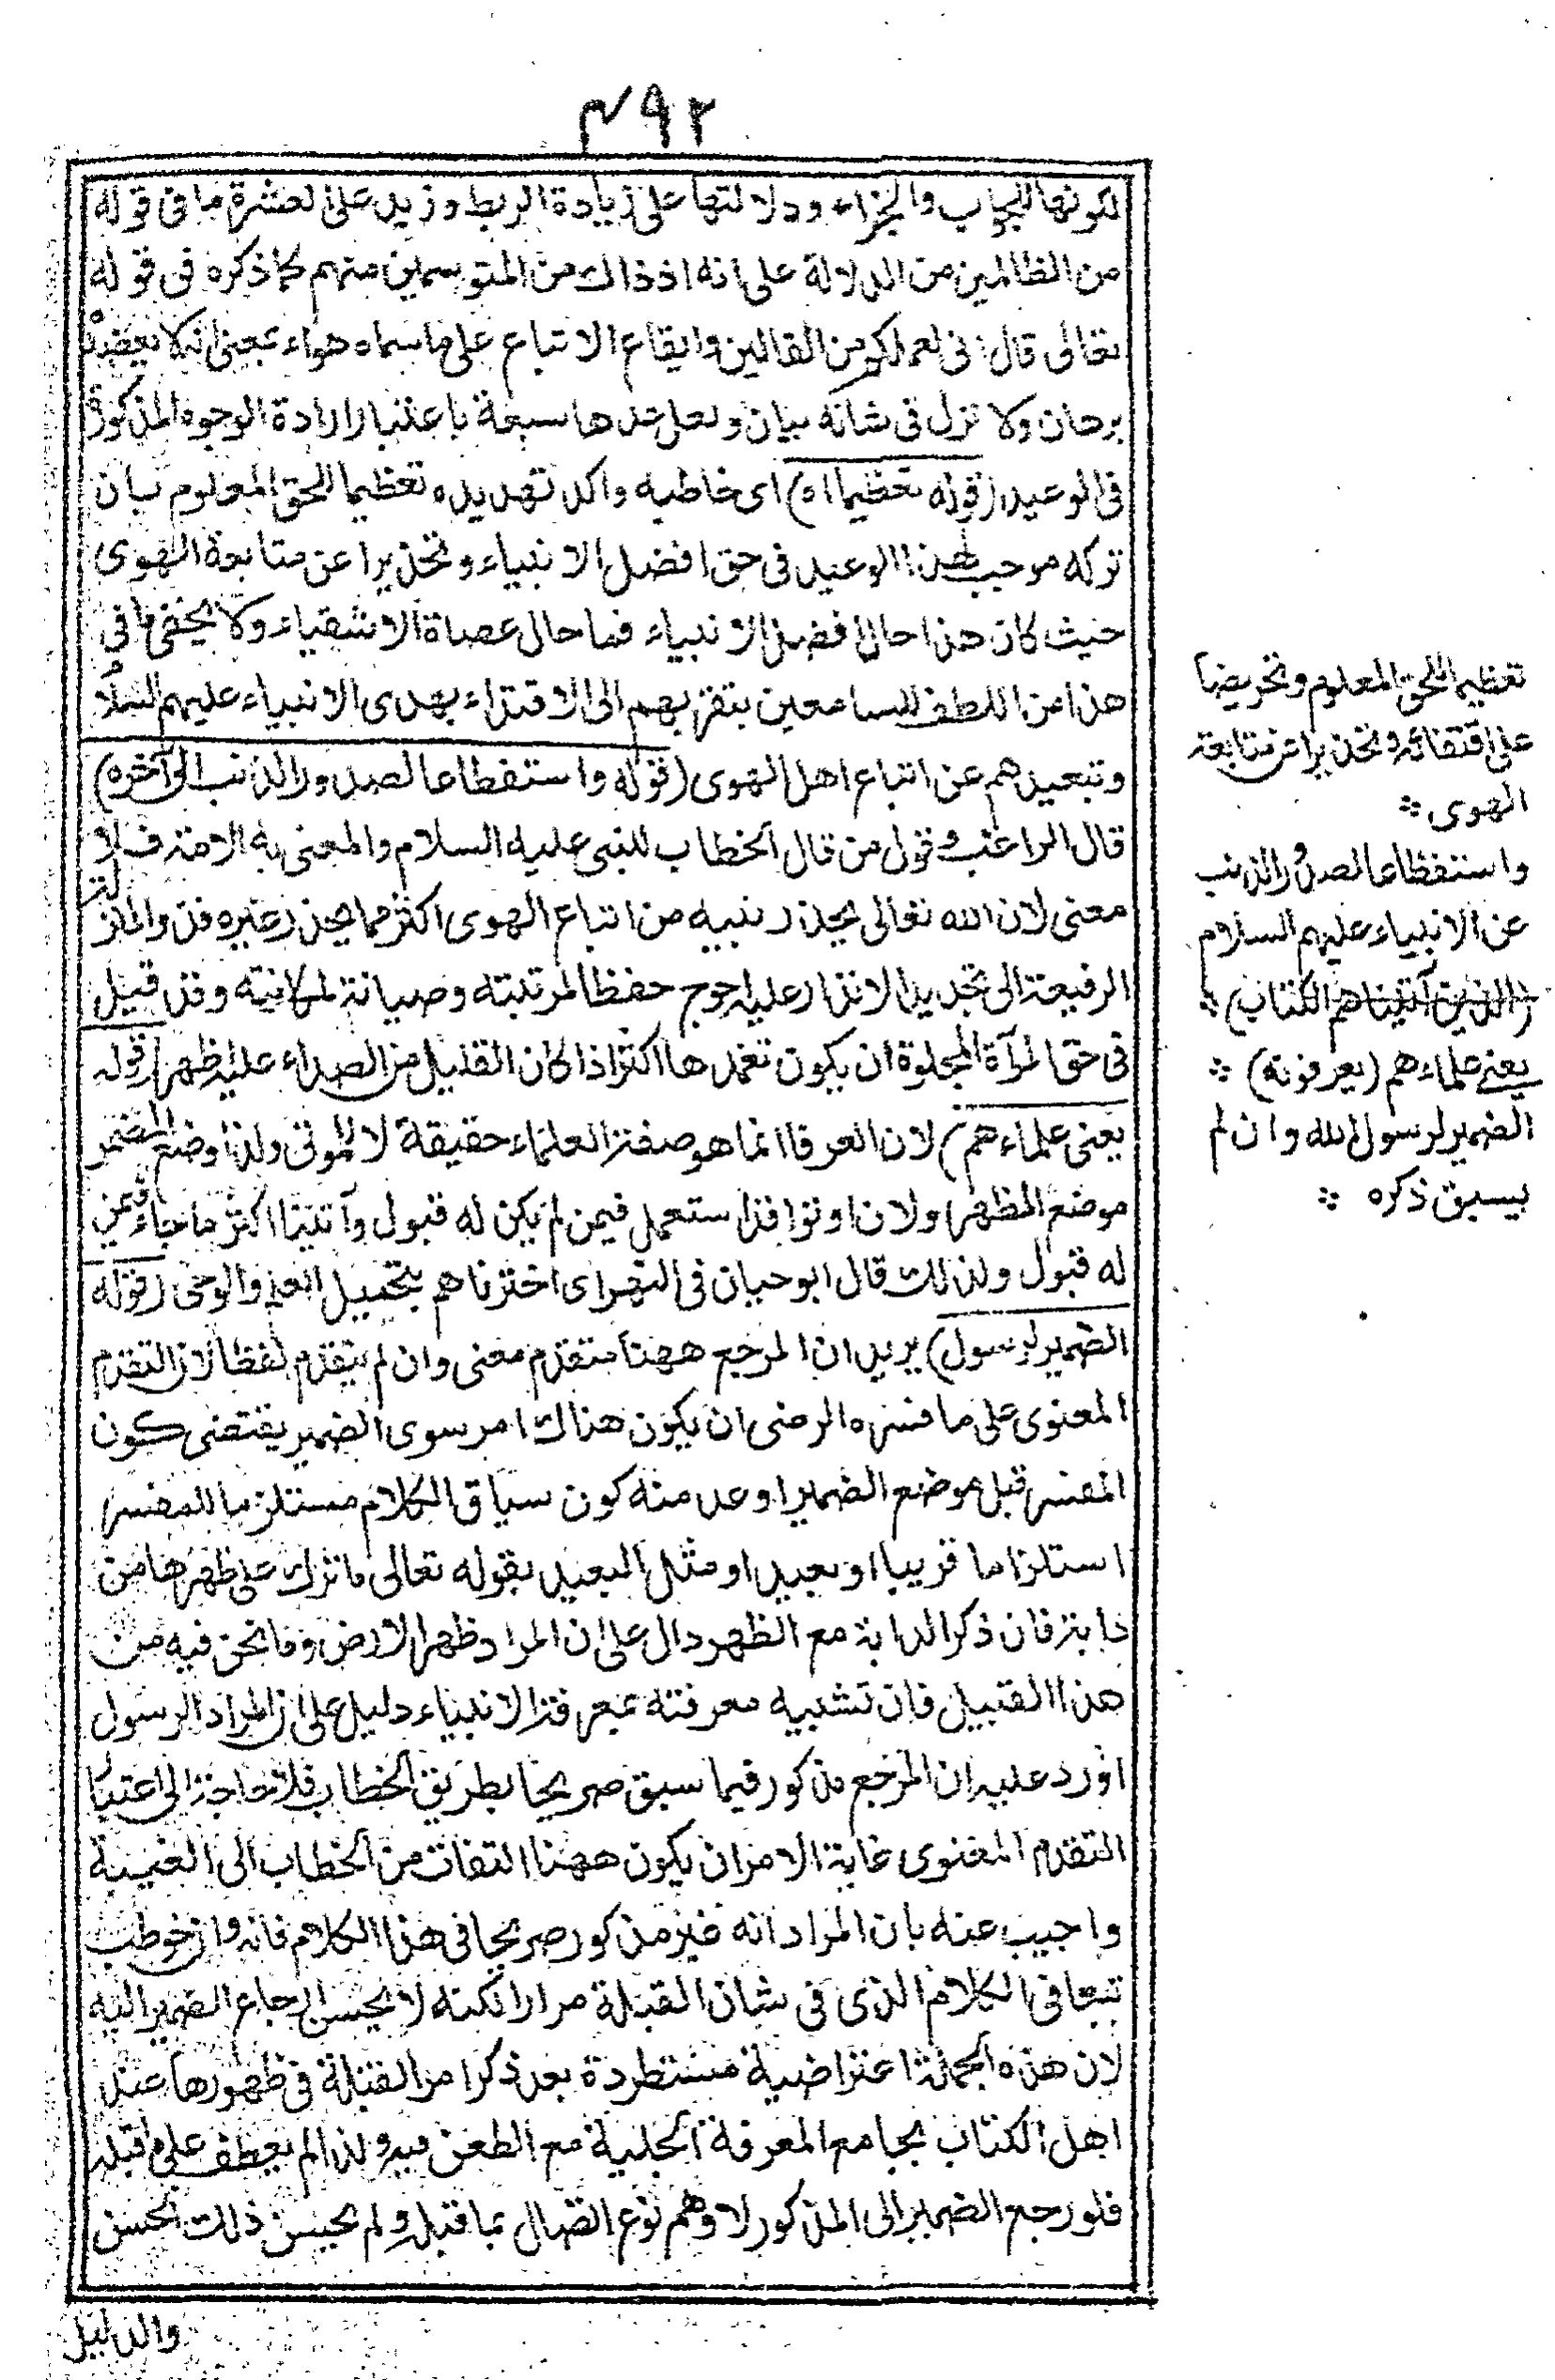 ٤٩٢
لكونها للجواب والجزاء ودلالتها على زيادة الربط وزيد على العشرة ما فى قوله
من الظالمين من الدلالة على انه اذ ذاك من المتوسمين منهم كما ذكره فى قوله
تعالى قال انى لعملكم من القالين وايقاع الاتباع على ما سماه هواء بمعنى انه لا يعضده
برهان ولا نزل فى شانه بيان ولعل عدها سبعة باعتبار ارادة الوجوه المذكورة
فى الوعيد (قوله تعظيما اه) اى خاطبه واكد تهديده تعظيما للحق المعلوم بان
تركه موجب لهذا الوعيد فى حق افضل الانبياء وتحذيرا عن متابعة الهوى
حيث كان هذا حال افضل الانبياء فما حال عصاة الاشقياء ولا يخفى ما فى
هذا من اللطف للسامعين بتقريبهم الى الاقتداء بهدى الانبياء عليهم السلام
وتبعيدهم عن اتباع اهل الهوى (قوله واستفظاعا لصدور الذنب الى آخره)
قال الراغب وقول من قال الخطاب للنبى عليه السلام والمعنى به الامة فلا
معنى لان الله تعالى يحذر نبيه من اتباع الهوى اكثر مما يحذر غيره فذو المنزلة
الرفيعة الى تجديد الانذار عليه احوج حفظا لمرتبته وصيانة لمكانته وقد قيل
فى حق المرآة المجلوة ان يكون تعهدها اكثر اذا كان القليل من الصداء عليه اظهر (قوله
يعنى علماءهم) لان العرفان انما هو صفة العلماء حقيقة لا للموتى ولذا وضع المضمر
موضع المظهر ولان اوتوا قد استعمل فيمن لم يكن له قبول وآتينا اكثر ما جاء فيمن
له قبول ولذلك قال ابو حيان فى النهر اى اخترناهم بتحميل العلم والوحى (قوله
الضمير لرسول) يريد ان المرجع ههنا متقدم معنى وان لم يتقدم لفظا لان التقدم
المعنوى على ما فسره الرضى ان يكون هناك امر سوى الضمير يقتضى كون
المفسر قبل موضع الضمير اوعد منه كون سياق الكلام مستلزما للمفسر
استلزاما قريبا او بعيدا ومثل البعيد بقوله تعالى ما ترك على ظهرها من
دابة فان ذكر الدابة مع الظهر دال على ان المراد ظهر الارض وما نحن فيه من
هذا القبيل فان تشبيه معرفته بمعرفة الانبياء دليل على ان المراد الرسول
اورد عليه ان المرجع مذكور فيما سبق صريحا بطريق الخطاب فلا حاجة الى اعتبار
التقدم المعنوى غاية الامر ان يكون ههنا التفات من الخطاب الى الغيبة
واجيب عنه بان المراد انه غير مذكور صريحا فى هذا الكلام فانه وان خوطب
تبعا فى الكلام الذى فى شان القبلة مرارا لكنه لا يحسن ارجاع الضمير اليه
لان هذه الجملة اعتراضية مستطردة بعد ذكر امر القبلة فى ظهورها عند
اهل الكتاب بجامع المعرفة الجلية مع الطعن فيه ولذا لم يعطف على ما قبله
فلو رجع الضمير الى المذكور لاوهم نوع اتصال بما قبله ولم يحسن ذلك الحسن
والدليل
تعظيما للحق المعلوم وتحريضا
على اقتفائه وتحذيرا عن متابعة
الهوى
واستفظاعا لصدور الذنب
عن الانبياء عليهم السلام
(الذين آتيناهم الكتاب)
يعنى علماءهم (يعرفونه)
الضمير لرسول الله وان لم
يسبق ذكره